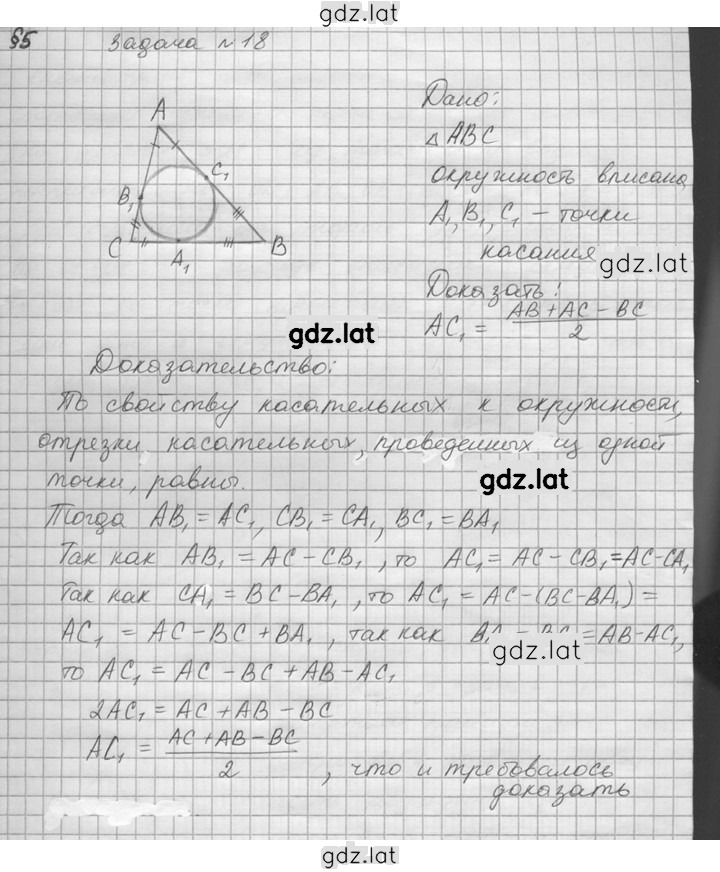 gdz.lat
§5 Задача №18
Дано:
A
△ABC
C₁
окружность вписана,
B₁
A₁, B₁, C₁ – точки
C A₁ B
касания
gdz.lat
Доказать:
AC₁ = (AB + AC – BC)/2
gdz.lat
Доказательство:
По свойству касательных к окружности,
отрезки касательных, проведенных из одной
точки, равны.
gdz.lat
Тогда AB₁ = AC₁, CB₁ = CA₁, BC₁ = BA₁
Так как AB₁ = AC – CB₁, то AC₁ = AC – CB₁ = AC – CA₁
Так как CA₁ = BC – BA₁, то AC₁ = AC – (BC – BA₁) =
AC₁ = AC – BC + BA₁, так как = AB – AC₁,
gdz.lat
то AC₁ = AC – BC + AB – AC₁
2AC₁ = AC + AB – BC
AC₁ = (AC + AB – BC)/2, что и требовалось
доказать
gdz.lat